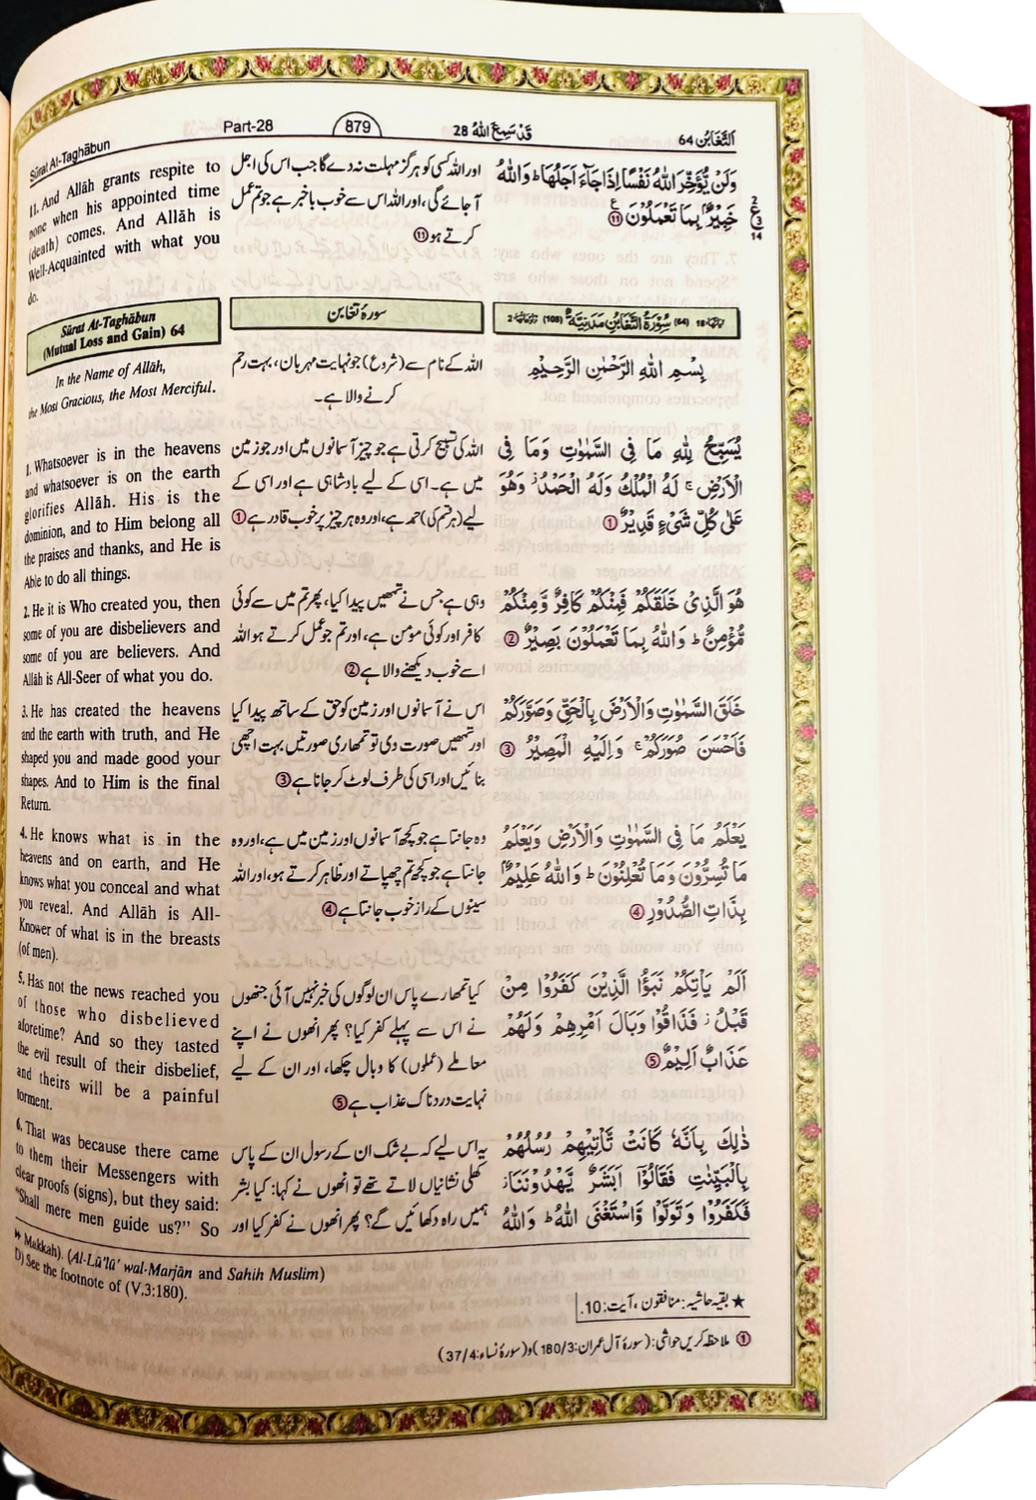 Sûrat At-Taghâbun
Part-28
879
قَدْ سَمِعَ اللّٰهُ 28
اَلتَّغَابُن 64
11. And Allâh grants respite to
none when his appointed time
(death) comes. And Allâh is
Well-Acquainted with what you
do.
Sûrat At-Taghâbun
(Mutual Loss and Gain) 64
In the Name of Allâh,
the Most Gracious, the Most Merciful.
1. Whatsoever is in the heavens
and whatsoever is on the earth
glorifies Allâh. His is the
dominion, and to Him belong all
the praises and thanks, and He is
Able to do all things.
2. He it is Who created you, then
some of you are disbelievers and
some of you are believers. And
Allâh is All-Seer of what you do.
3. He has created the heavens
and the earth with truth, and He
shaped you and made good your
shapes. And to Him is the final
Return.
4. He knows what is in the
heavens and on earth, and He
knows what you conceal and what
you reveal. And Allâh is All-
Knower of what is in the breasts
(of men).
5. Has not the news reached you
of those who disbelieved
aforetime? And so they tasted
the evil result of their disbelief,
and theirs will be a painful
torment.
6. That was because there came
to them their Messengers with
clear proofs (signs), but they said:
"Shall mere men guide us?" So
اور اللہ کسی کو ہرگز مہلت نہ دے گا جب اس کی اجل
آجائے گی، اور اللہ اس سے خوب باخبر ہے جو تم عمل
کرتے ہو ⑪
سورۂ تغابن
اللہ کے نام سے (شروع) جو نہایت مہربان، بہت رحم
کرنے والا ہے۔
اللہ کی تسبیح کرتی ہے جو چیز آسمانوں میں اور جو زمین
میں ہے۔ اسی کے لیے بادشاہی ہے اور اسی کے
لیے (ہر قسم کی) حمد ہے، اور وہ ہر چیز پر خوب قادر ہے ①
وہی ہے جس نے تمھیں پیدا کیا، پھر تم میں سے کوئی
کافر اور کوئی مومن ہے، اور تم جو عمل کرتے ہو اللہ
اسے خوب دیکھنے والا ہے ②
اس نے آسمانوں اور زمین کو حق کے ساتھ پیدا کیا
اور تمھیں صورت دی تو تمھاری صورتیں بہت اچھی
بنائیں اور اسی کی طرف لوٹ کر جانا ہے ③
وہ جانتا ہے جو کچھ آسمانوں اور زمین میں ہے، اور وہ
جانتا ہے جو کچھ تم چھپاتے اور ظاہر کرتے ہو، اور اللہ
سینوں کے راز خوب جانتا ہے ④
کیا تمھارے پاس ان لوگوں کی خبر نہیں آئی جنھوں
نے اس سے پہلے کفر کیا؟ پھر انھوں نے اپنے
معاملے (عملوں) کا وبال چکھا، اور ان کے لیے
نہایت دردناک عذاب ہے ⑤
یہ اس لیے کہ بے شک ان کے رسول ان کے پاس
کھلی نشانیاں لاتے تھے تو انھوں نے کہا: کیا بشر
ہمیں راہ دکھائیں گے؟ پھر انھوں نے کفر کیا اور
وَلَنْ يُّؤَخِّرَ اللّٰهُ نَفْسًا اِذَا جَآءَ اَجَلُهَا ؕ وَاللّٰهُ
خَبِيْرٌۢ بِمَا تَعْمَلُوْنَ ⑪
2
ع
3
14
سُوْرَةُ التَّغَابُنِ مَدَنِيَّةٌ (64) (108)
بِسْمِ اللّٰهِ الرَّحْمٰنِ الرَّحِيْمِ
يُسَبِّحُ لِلّٰهِ مَا فِى السَّمٰوٰتِ وَمَا فِى
الْاَرْضِ ۚ لَهُ الْمُلْكُ وَلَهُ الْحَمْدُ ۡ وَهُوَ
عَلٰى كُلِّ شَىْءٍ قَدِيْرٌ ①
هُوَ الَّذِىْ خَلَقَكُمْ فَمِنْكُمْ كَافِرٌ وَّمِنْكُمْ
مُّؤْمِنٌ ؕ وَاللّٰهُ بِمَا تَعْمَلُوْنَ بَصِيْرٌ ②
خَلَقَ السَّمٰوٰتِ وَالْاَرْضَ بِالْحَقِّ وَصَوَّرَكُمْ
فَاَحْسَنَ صُوَرَكُمْ ۚ وَاِلَيْهِ الْمَصِيْرُ ③
يَعْلَمُ مَا فِى السَّمٰوٰتِ وَالْاَرْضِ وَيَعْلَمُ
مَا تُسِرُّوْنَ وَمَا تُعْلِنُوْنَ ؕ وَاللّٰهُ عَلِيْمٌۢ
بِذَاتِ الصُّدُوْرِ ④
اَلَمْ يَاْتِكُمْ نَبَؤُا الَّذِيْنَ كَفَرُوْا مِنْ
قَبْلُ ۡ فَذَاقُوْا وَبَالَ اَمْرِهِمْ وَلَهُمْ
عَذَابٌ اَلِيْمٌ ⑤
ذٰلِكَ بِاَنَّهٗ كَانَتْ تَّاْتِيْهِمْ رُسُلُهُمْ
بِالْبَيِّنٰتِ فَقَالُوْٓا اَبَشَرٌ يَّهْدُوْنَنَا ۡ
فَكَفَرُوْا وَتَوَلَّوْا وَّاسْتَغْنَى اللّٰهُ ؕ وَاللّٰهُ
Makkah). (Al-Lû'lû' wal-Marjân and Sahih Muslim)
See the footnote of (V.3:180).
★ بقیہ حاشیہ: منافقون، آیت: 10.
① ملاحظہ کریں حواشی: (سورۂ آل عمران: 180/3) و (سورۂ نساء: 37/4)